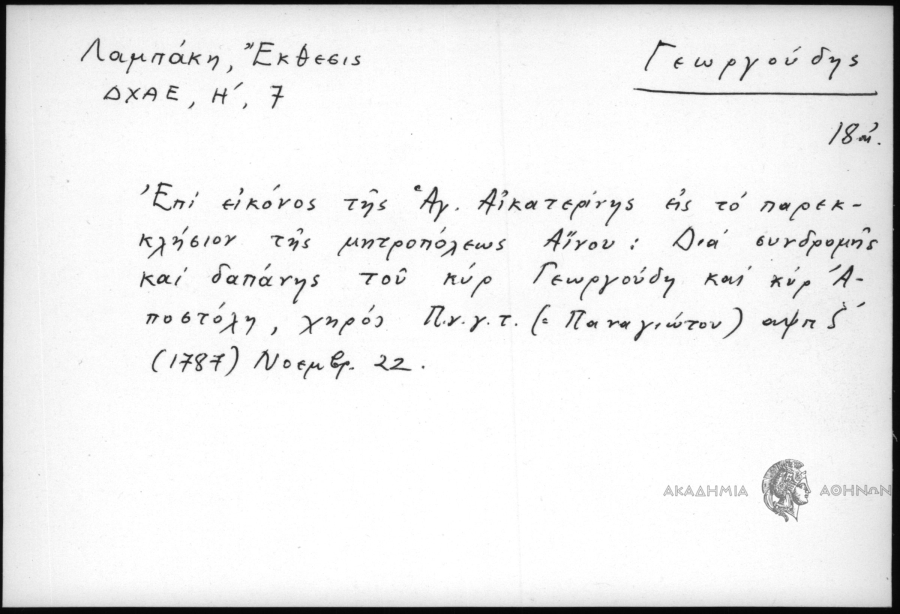 Λαμπάκη, Ἔκθεσις
Γεωργούδης
ΔΧΑΕ, Η΄, 7
18 αἰ.
Ἐπί εἰκόνος τῆς Ἁγ. Αἰκατερίνης εἰς τό παρεκ-
κλήσιον τῆς μητροπόλεως Αἴνου: Διά συνδρομῆς
καί δαπάνης τοῦ κύρ Γεωργούδη καί κύρ Ἀ-
ποστόλη, χηρός Π.ν.γ.τ. (= Παναγιώτου) αψπζ΄
(1787) Νοεμβρ. 22.
ΑΚΑΔΗΜΙΑ ΑΘΗΝΩΝ